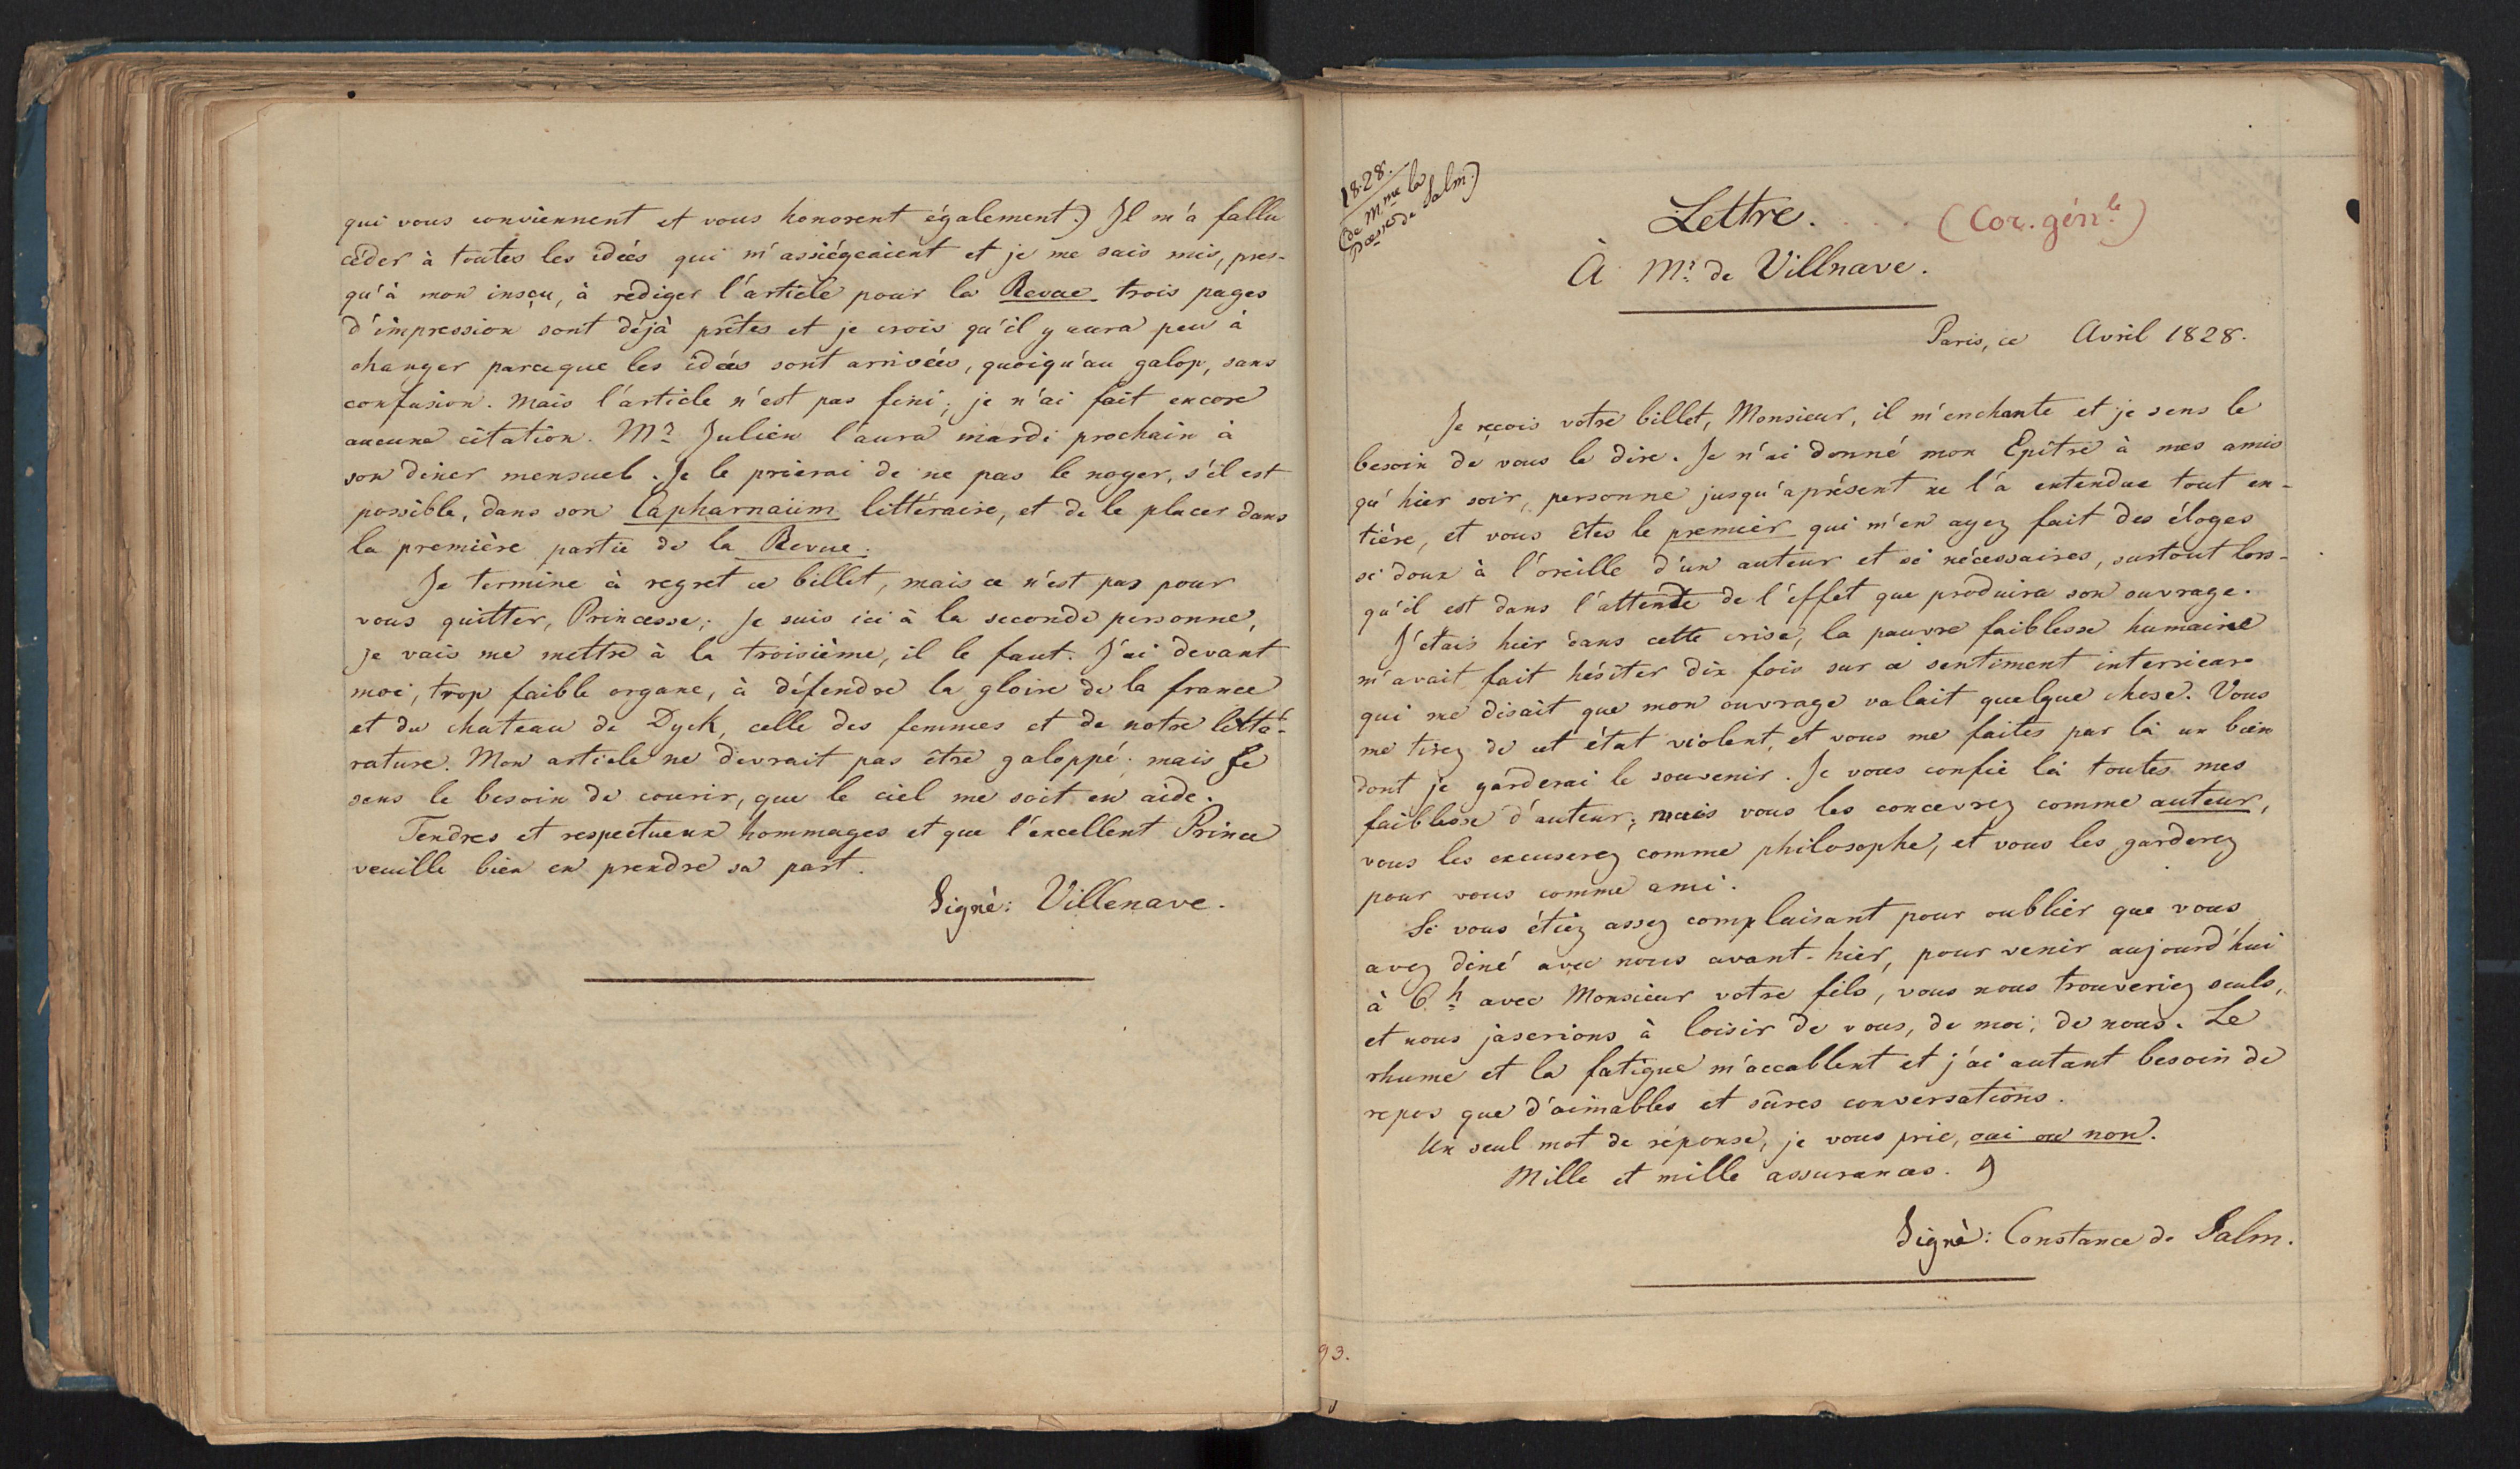 qui vous conviennent et vous honorent également.) Il m'a fallu
céder à toutes les idées qui m'assiégeaient et je me suis mis, pres-
qu'à mon insçu, à rédiger l'article pour la Revue trois pages
d'impression sont déjà prêtes et je crois qu'il y aura peu à
changer parceque les idées sont arrivées, quoiqu'au galop, sans
confusion. Mais l'article n'est pas fini; je n'ai fait encore
aucune citation. Mr Julien l'aura mardi prochain à
son diner mensuel. Je le prierai de ne pas le noyer, s'il est
possible, dans son Capharnaüm littéraire, et de le placer dans
la première partie de la Revue.
Je termine à regret ce billet, mais ce n'est pas pour
vous quitter, Princesse; Je suis ici à la seconde personne,
je vais me mettre à la troisième, il le faut. J'ai devant
moi, trop faible organe, à défendre la gloire de la france
et du chateau de Dyck, celle des femmes et de notre litté-
rature. Mon article ne devrait pas être galoppé; mais Je
sens le besoin de courir, que le ciel me soit en aide.
Tendres et respectueux hommages et que l'excellent Prince
veuille bien en prendre sa part.
Signé: Villenave.
1828.
(de Mme la
Pcesse de Salm.)
Lettre. . . . . (Cor. génle)
À Mr de Villnave.
Paris, ce Avril 1828.
Je reçois votre billet, Monsieur, il m'enchante et je sens le
besoin de vous le dire. Je n'ai donné mon Epître à mes amis
qu'hier soir, personne jusqu'aprésent ne l'a entendue tout en-
tière, et vous êtes le premier qui m'en ayez fait des éloges
si doux à l'oreille d'un auteur et si nécessaires, surtout lors-
qu'il est dans l'attente de l'éffet que produira son ouvrage.
J'étais hier dans cette crise, la pauvre faiblesse humaine
m'avait fait hésiter dix fois sur ce sentiment interrieur
qui me disait que mon ouvrage valait quelque chose. Vous
me tirez de cet état violent, et vous me faites par là un bien
dont je garderai le souvenir. Je vous confie là toutes mes
faiblesse d'auteur; mais vous les concevrez comme auteur,
vous les excuserez comme philosophe, et vous les garderez
pour vous comme ami.
Si vous étiez assez complaisant pour oublier que vous
avez diné avec nous avant-hier, pour venir aujourd'hui
à 6 h avec Monsieur votre fils, vous nous trouveriez seuls,
et nous jaserions à loisir de vous, de moi, de nous. Le
rhume et la fatigue m'accablent et j'ai autant besoin de
repos que d'aimables et sûres conversations.
Un seul mot de réponse, je vous prie, oui ou non.
Mille et mille assurances. )
Signé: Constance de Salm.
93.